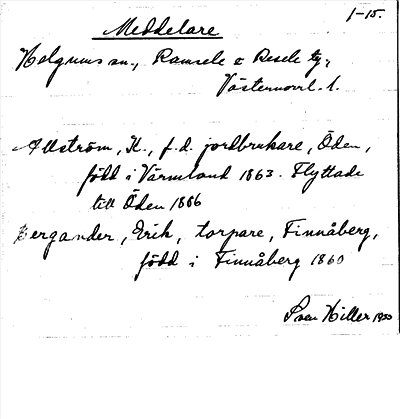 1-15.
Meddelare
Helgums sn., Ramsele o Resele tg,
Västernorrl. l.
Allström, K., f.d. jordbrukare, Öden,
född i Värmland 1863. Flyttade
till Öden 1886
Bergander, Erik, torpare, Finnåberg,
född i Finnåberg 1860
Sven Hiller 1930